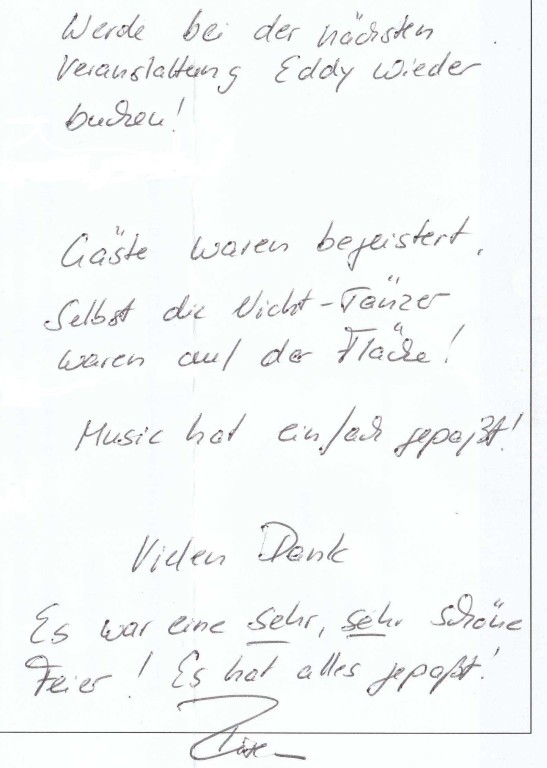 Werde bei der nächsten
Veranstaltung Eddy wieder
buchen!
Gäste waren begeistert.
Selbst die Nicht-Tänzer
waren auf der Fläche!
Music hat einfach gepaßt!
Vielen Dank
Es war eine sehr, sehr schöne
Feier! Es hat alles gepaßt!